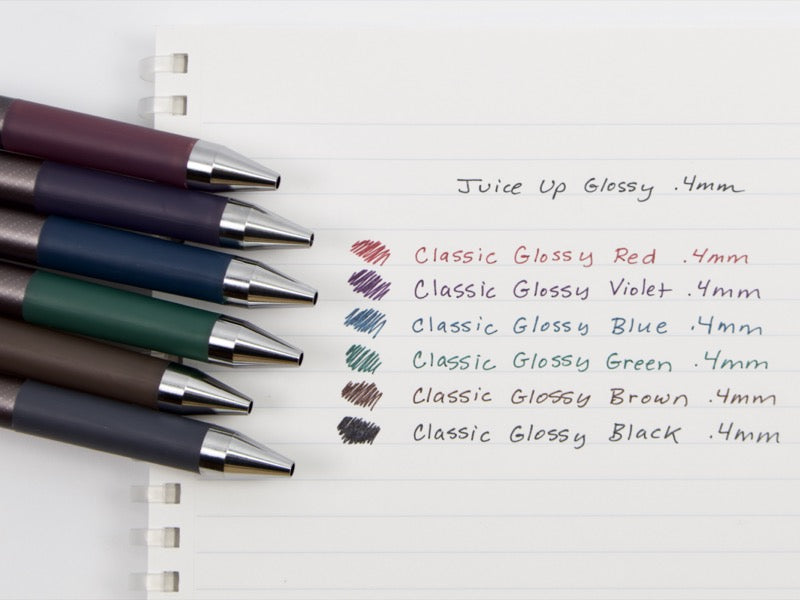 Juice Up Glossy .4mm
Classic Glossy Red .4mm
Classic Glossy Violet .4mm
Classic Glossy Blue .4mm
Classic Glossy Green .4mm
Classic Glossy Brown .4mm
Classic Glossy Black .4mm